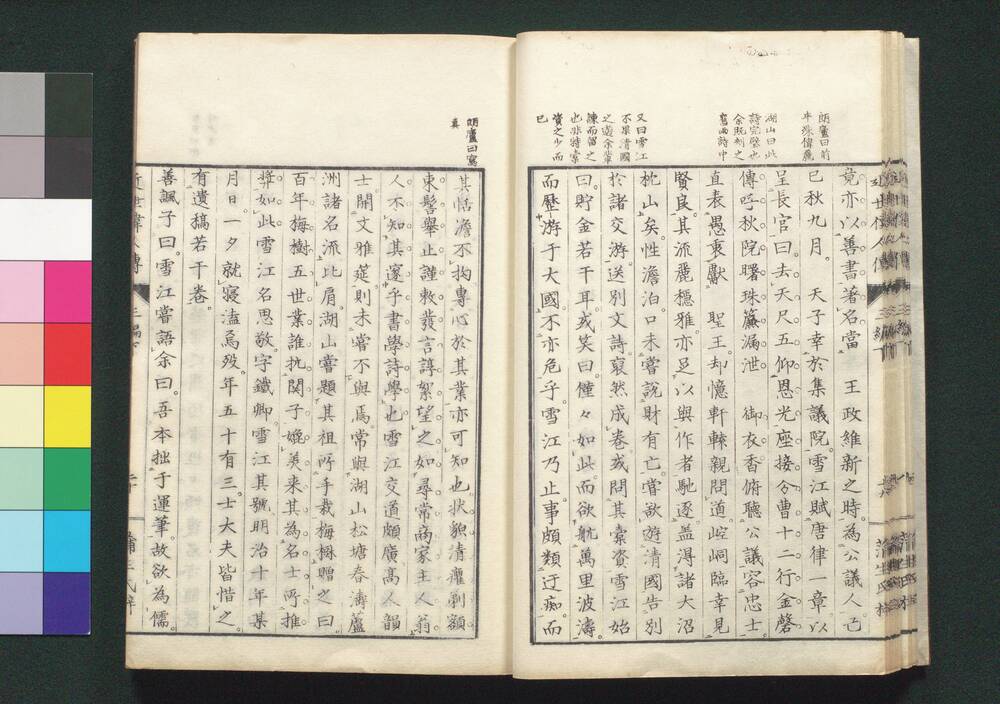 朗廬曰前
半殊偉麗
湖山曰此
詩完璧也
余既刻之
舊雨詩中
又曰雪江
不果清國
之遊余輩
諫而留之
也非特索
資之少而
已
竟亦以善書著名當　王政維新之時為公議人己
巳秋九月　天子幸於集議院雪江賦唐律一章以
呈長官曰去天尺五仰恩光座接分曹十二行金磬
傳呼秋院曙珠簾漏泄　御衣香俯聽公議容忠士
直表愚衷獻　聖王却憶軒轅親問道崆峒臨幸見
賢良其流麗穩雅亦足以與作者馳逐盖得諸大沼
枕山矣性澹泊口未嘗說財有亡嘗欲遊清國告別
於諸交游送別文詩裒然成卷或問其索資雪江始
曰貯金若干耳或笑曰僅々如此而欲航萬里波濤
而歷游于大國不亦危乎雪江乃止事頗類迂痴而
朗廬曰寫
真
其恬澹不拘專心於其業亦可知也狀貌清癯剃額
束髻舉止謹敕發言諄絮望之如尋常商家主人翁
人不知其邃乎書學詩學也雪江交道頗廣高人韻
士開文雅莚則未嘗不與焉常與湖山松塘春濤蘆
洲諸名流比肩湖山嘗題其祖所手栽梅樹贈之曰
百年梅樹五世業誰抗関子媲美来其為名士所推
奨如此雪江名思敬字鐵卿雪江其號明治十年某
月日一夕就寢溘焉歿年五十有三士大夫皆惜之
有遺稿若干卷
善諷子曰雪江嘗語余曰吾本拙于運筆故欲為儒
近世偉人傳